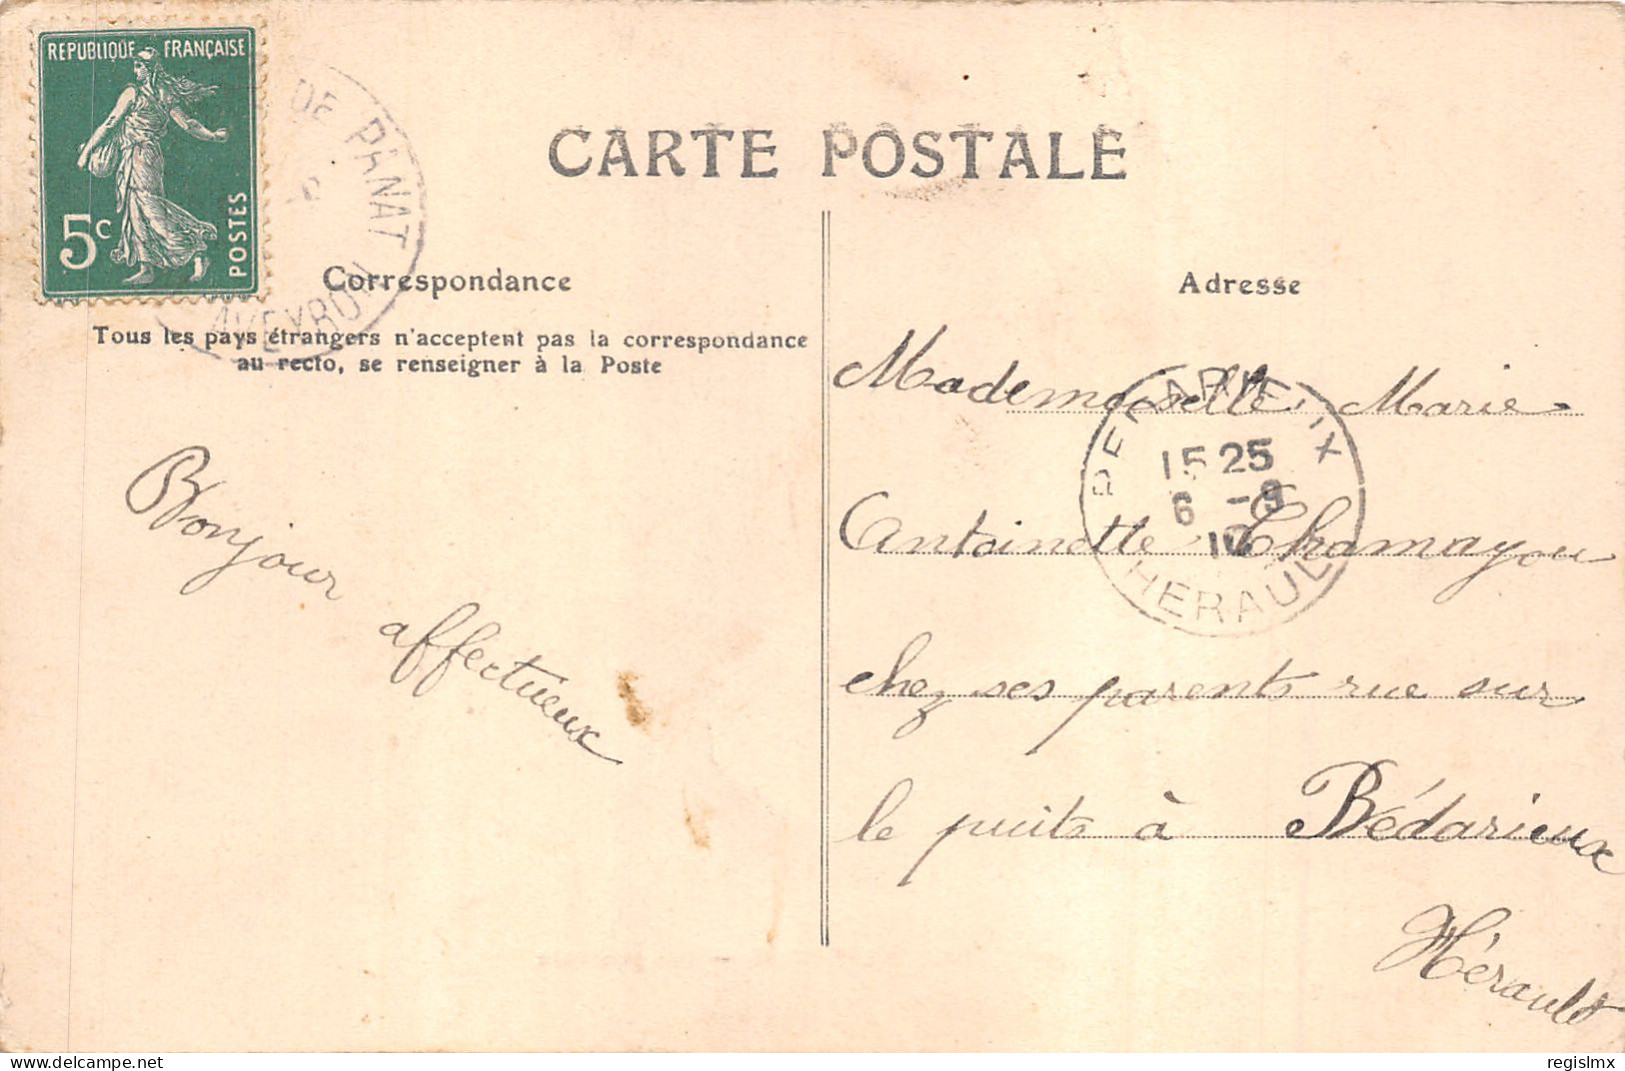 REPUBLIQUE FRANÇAISE
5c
POSTES
DE PANAT
AVEYRON
CARTE POSTALE
Correspondance
Tous les pays étrangers n'acceptent pas la correspondance
au recto, se renseigner à la Poste
Bonjour
affectueux
Adresse
Mademoiselle Marie
Antoinette Chamayou
chez ses parents rue sur
le puits à Bédarieux
Hérault
BEDARIEUX
15 25
6 -9
10
HERAULT
delcampe.net
regislmx